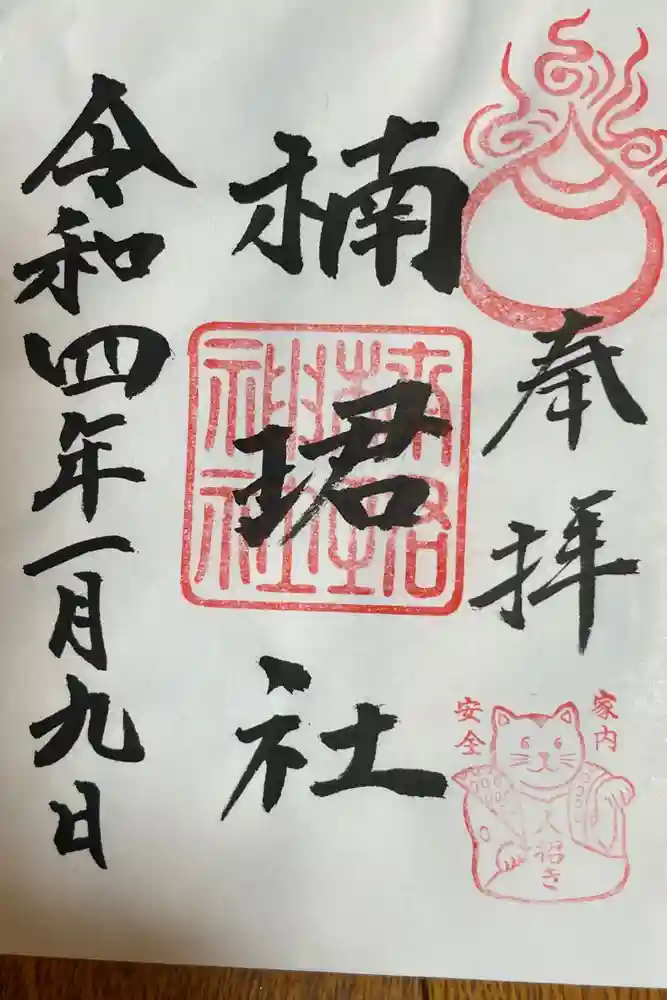 奉拝
楠珺社
令和四年一月九日
家内
安全
人招き